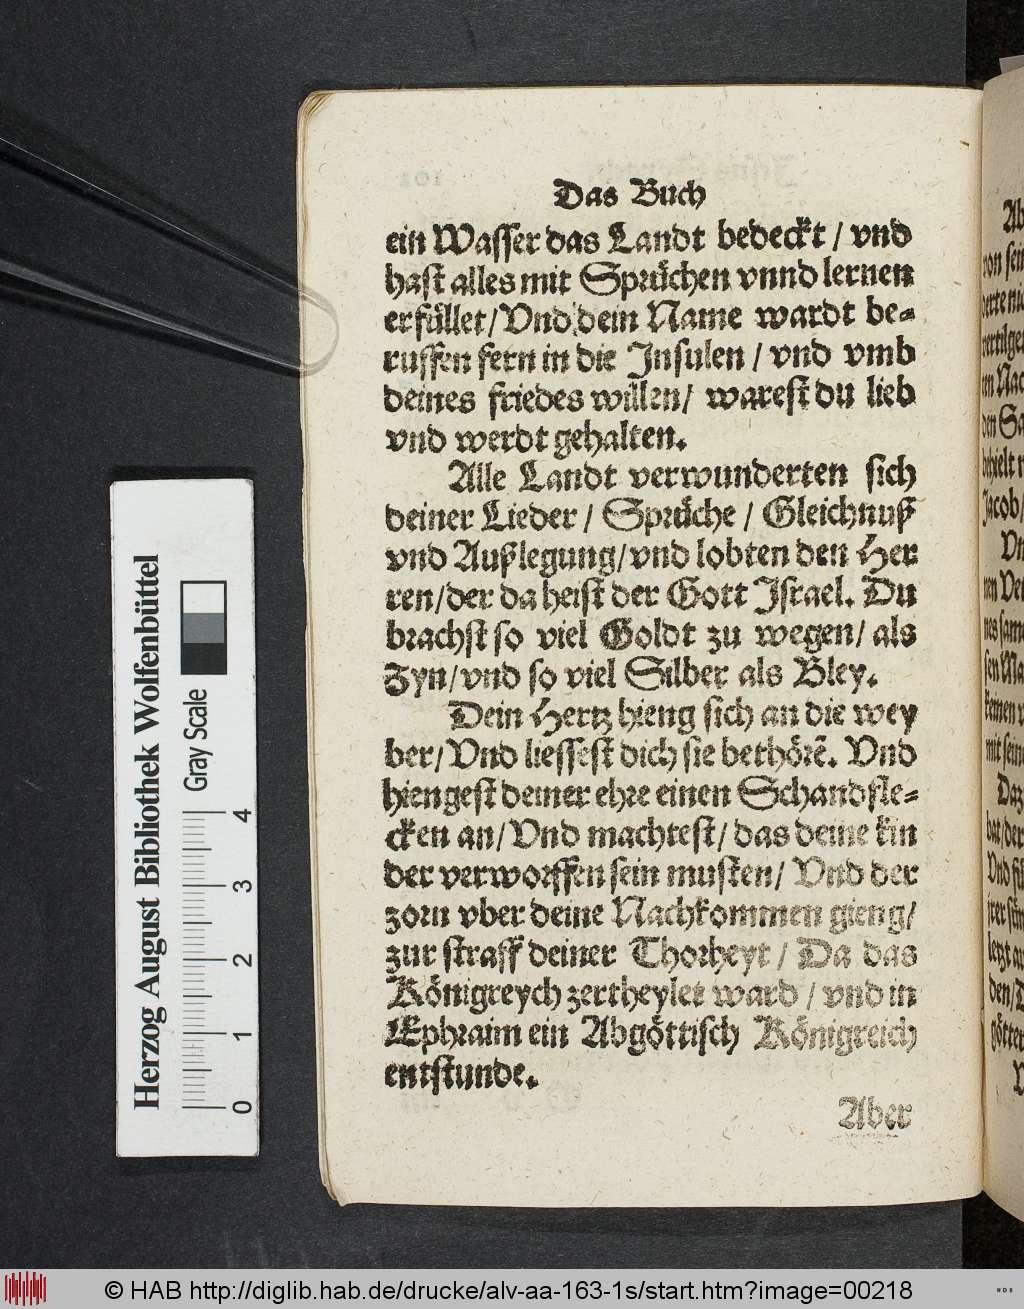 Das Buch
ein Wasser das Landt bedeckt / vnd
hast alles mit Sprüchen vnnd lernen
erfüllet / Vnd dein Name wardt be-
ruffen fern in die Insulen / vnd vmb
deines friedes willen / warest du lieb
vnd werdt gehalten.
Alle Landt verwunderten sich
deiner Lieder / Sprüche / Gleichnuß
vnd Außlegung / vnd lobten den Her
ren / der da heist der Gott Israel. Du
brachst so viel Goldt zu wegen / als
Zyn / vnd so viel Silber als Bley.
Dein Hertz hieng sich an die wey
ber / Vnd liessest dich sie bethörē. Vnd
hiengest deiner ehre einen Schandfle-
cken an / Vnd machtest / das deine kin
der verworffen sein musten / Vnd der
zorn vber deine Nachkommen gieng /
zur straff deiner Thorheyt / Da das
Königreych zertheylet ward / vnd in
Ephraim ein Abgöttisch Königreich
entstunde.
Aber
Herzog August Bibliothek Wolfenbüttel
Gray Scale
0 1 2 3 4
© HAB http://diglib.hab.de/drucke/alv-aa-163-1s/start.htm?image=00218